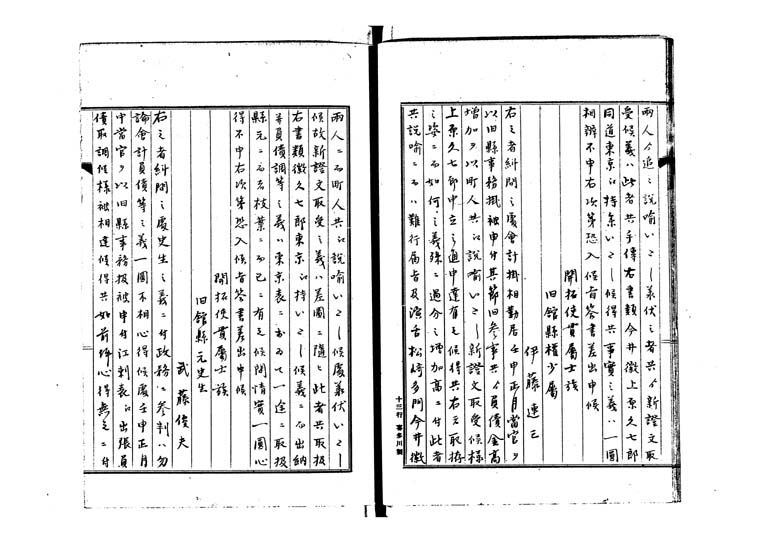 兩人ゟ追々説喩いたし義伏之者共ゟ新證文取
受候義ハ此者共手傳右書類今井徹上原久七郎
同道東京江持參いたし候得共事實之義ハ一圓
相辨不申右次第恐入候旨答書差出申候
開拓使貫屬士族
旧舘縣權少屬
伊藤連三
右之者糾問之處會計掛相勤居壬申正月當官ゟ
以旧縣事務掛被申付其節旧參事共ゟ負債金高
増加ヲ以町人共江説喩いたし新證文取受候様
上原久七郎申立之通申達有之候得共右之取拵
之姿ニ而如何之義殊ニ過分之増加高ニ付此者
共説喩ニ而ハ難行届旨及演舌松崎多門今井徹
十三行 喜多川製
兩人ニ而町人共江説喩いたし候處義伏いたし
候故新證文取受之義ハ差圖ニ隨ヒ此者共取扱
右書類徹久七郎東京江持いたし候義ニ而出納
并負債調等之義ハ東京表ニおゐて一途ニ取扱
縣元ニ而者枝葉ニ而已ニ有之候間情實一圓心
得不申右次第恐入候旨答書差出申候
開拓使貫屬士族
旧舘縣元史生
武藤俊夫
右之者糾問之處史生之義ニ付政務ニ參判ハ勿
論會計負債等之義一圓不相心得候處壬申正月
中當官ゟ以旧縣事務扱被申付江刺表江出張負
債取調候様被相達候得共如前件心得無之ニ付